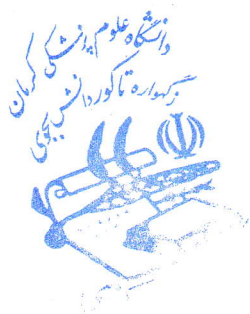 دانشگاه علوم پزشکی کرمان
زگهواره تا گور دانش بجوی